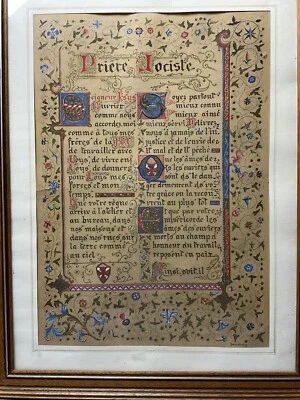 Prière Jociste
Seigneur Jésus
Ouvrier
comme nous
accordez-moi,
comme à tous mes
frères de la
de travailler avec
Vous, de vivre en
Vous, de donner
pour Vous mes
forces et mon
temps.
Que votre règne
arrive à l'atelier et
au bureau, dans
nos maisons et
dans nos rues, sur
la terre comme
au ciel.
Soyez partout
mieux connu
mieux aimé
mieux servi. Délivrez
nous à jamais de l'in
justice et de l'envie de
mal et de péché
Que les âmes des
ouvriers qui
sont au dan
ger demeurent
grâce
au plus tôt
Et que par votre
miséricorde les
âmes des ouvriers
morts au champ d'
honneur du travail
reposent en paix.
Ainsi soit-il